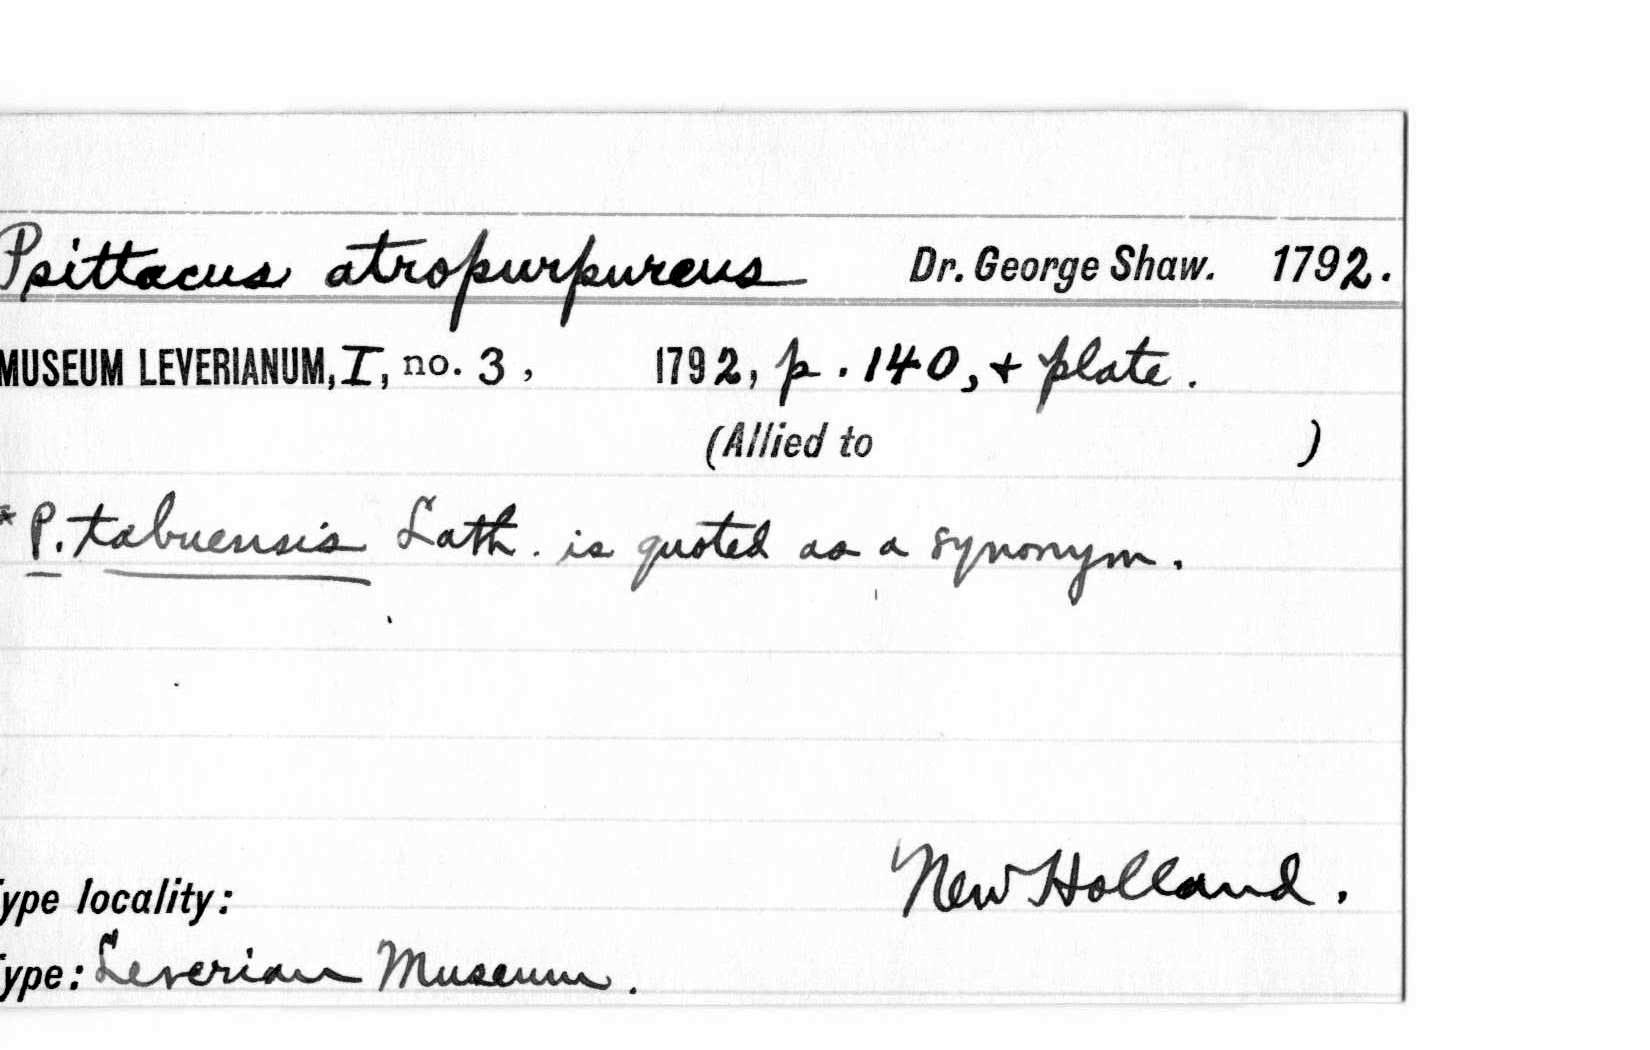 Psittacus atropurpureus Dr. George Shaw. 1792.
MUSEUM LEVERIANUM, I, no. 3, 1792, p. 140, + plate.
(Allied to )
* P. tabuensis Lath. is quoted as a synonym.
New Holland.
ype locality:
ype: Leverian Museum.